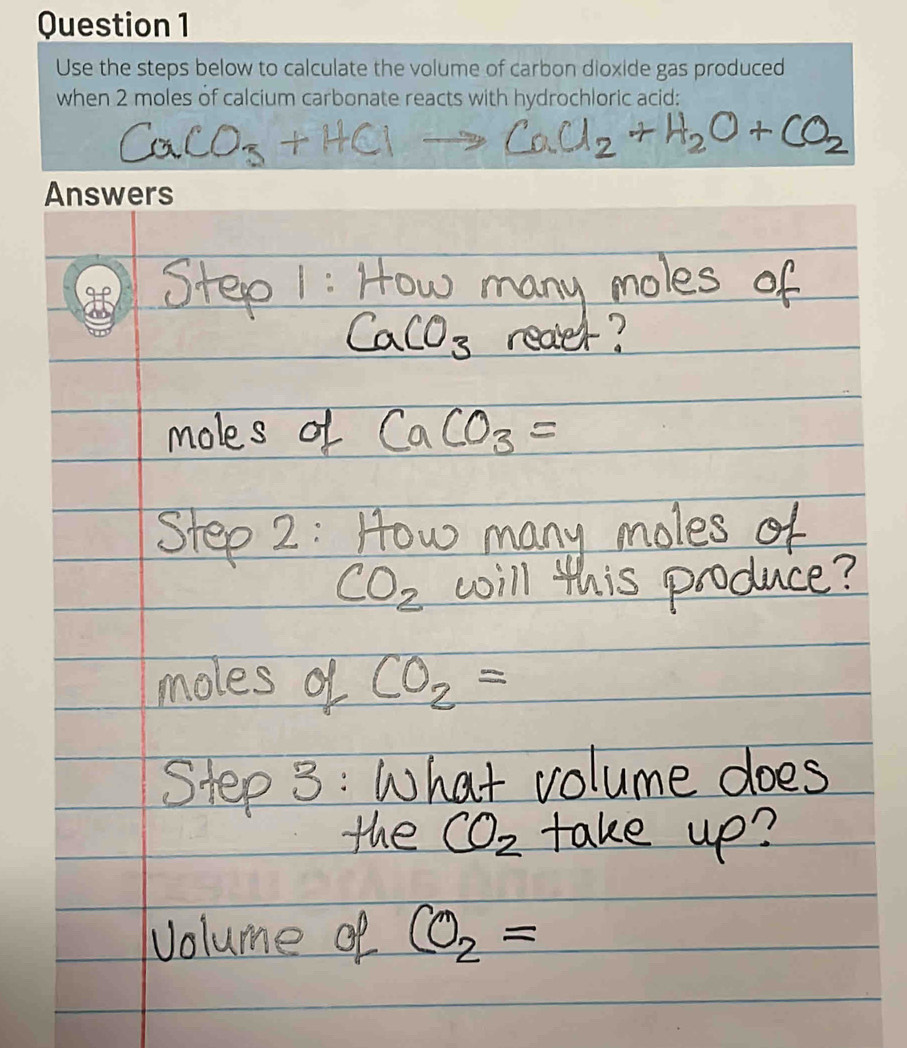 Question 1
Use the steps below to calculate the volume of carbon dioxide gas produced
when 2 moles of calcium carbonate reacts with hydrochloric acid:
CaCO₃ + HCl → CaCl₂ + H₂O + CO₂
Answers
Step 1: How many moles of
CaCO₃ react?
moles of CaCO₃ =
Step 2: How many moles of
CO₂ will this produce?
moles of CO₂ =
Step 3: What volume does
the CO₂ take up?
Volume of CO₂ =